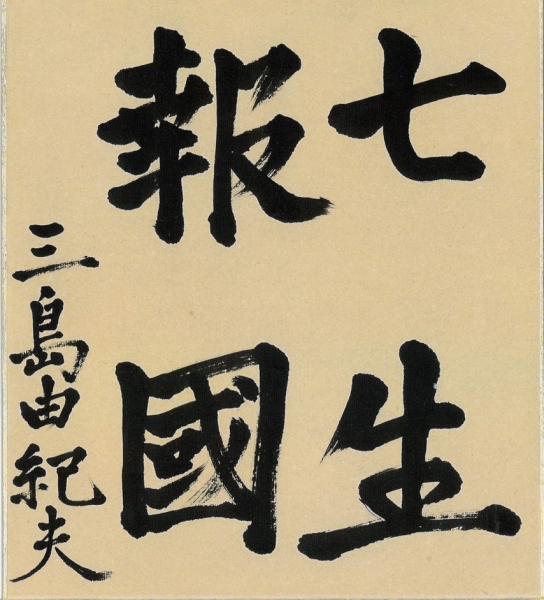 七生
報國
三島由紀夫